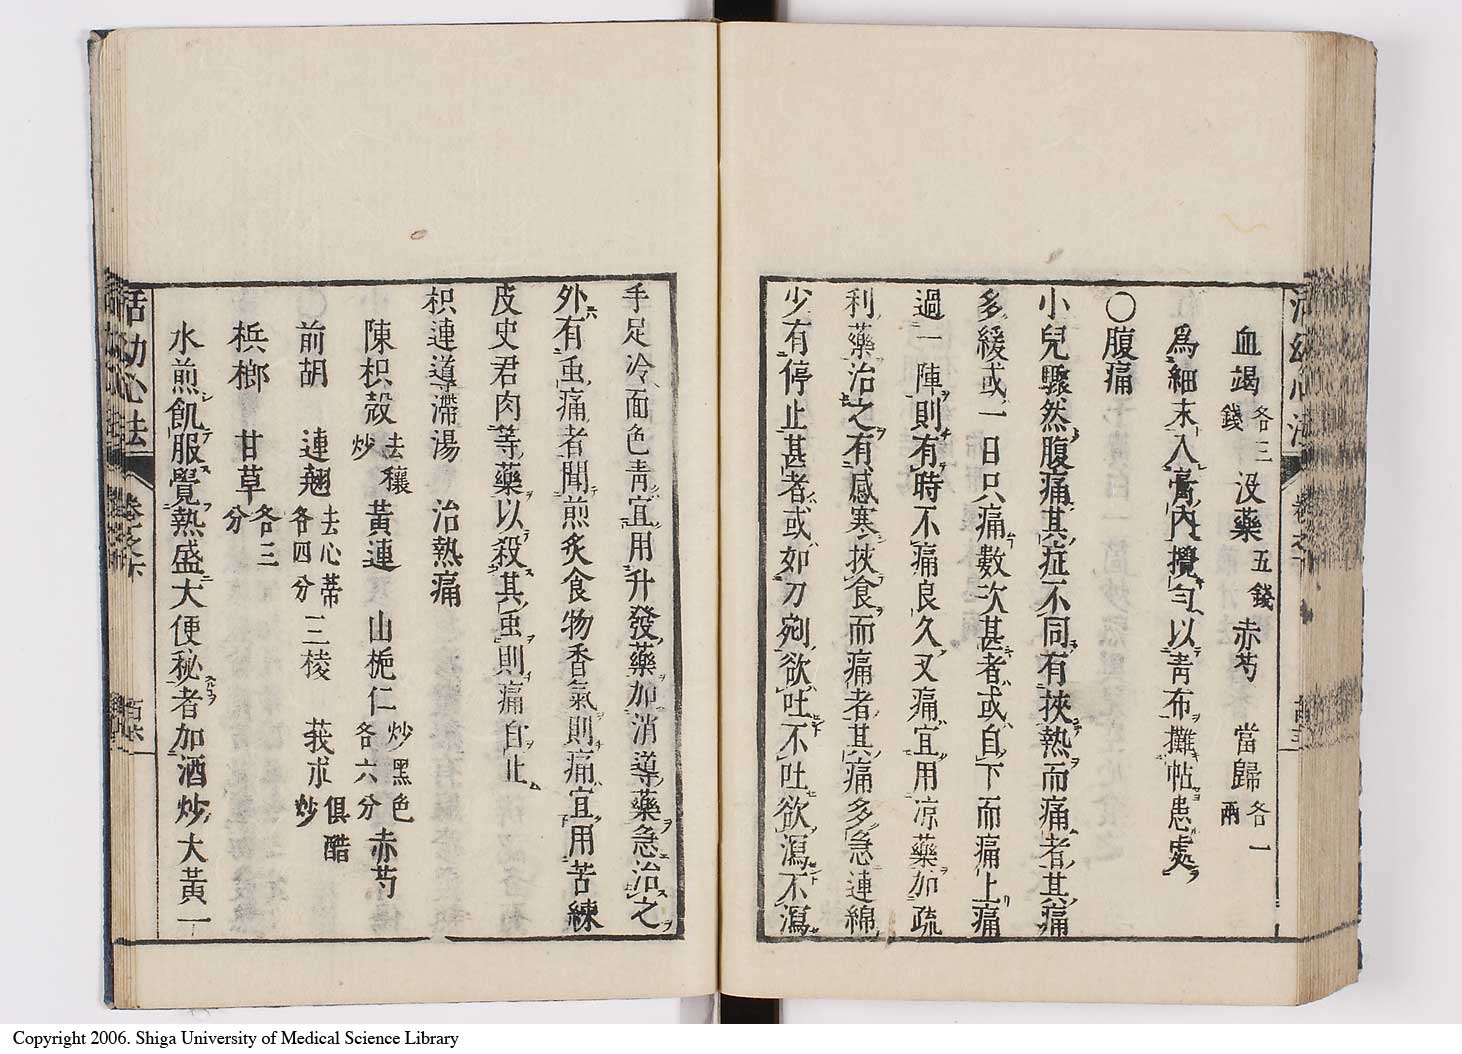 血竭各三錢 沒藥五錢 赤芍 當歸各一兩
爲細末入膏內攪勻以靑布攤帖患處
○腹痛
小兒驟然腹痛其症不同有挾熱而痛者其痛
多緩或一日只痛數次甚者或自下而痛上痛
過一陣則有時不痛良久又痛宜用凉藥加疏
利藥治之有感寒挾食而痛者其痛多急連綿
少有停止甚者或如刀剜欲吐不吐欲瀉不瀉
手足冷面色靑宜用升發藥加消導藥急治之
外有虫痛者聞煎炙食物香氣則痛宜用苦練
皮史君肉等藥以殺其虫則痛自止
枳連導滯湯 治熱痛
陳枳殼去穰炒 黃連 山梔仁炒黑色各六分 赤芍
前胡 連翹去心蒂各四分 三棱 莪朮俱醋炒
梹榔 甘草各三分
水煎飢服覺熱盛大便秘者加酒炒大黃一
活幼心法 卷之六
Copyright 2006. Shiga University of Medical Science Library